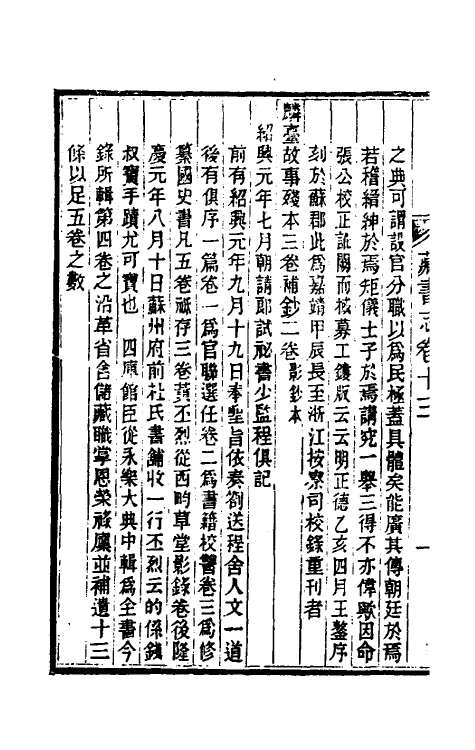 藏書志卷十三
一
之典可謂設官分職以爲民極蓋具體矣能廣其傳朝廷於焉
若稽縉紳於焉矩儀士子於焉講究一舉三得不亦偉歟因命
張公校正訛闕而核募工鏤版云云明正德乙亥四月王鏊序
刻於蘇郡此爲嘉靖甲辰長至浙江按察司校錄重刊者
麟臺故事殘本三卷補鈔二卷影鈔本
紹興元年七月朝請郎試祕書少監程俱記
前有紹興元年九月十九日奉聖旨依奏劄送程舍人文一道
後有俱序一篇卷一爲官聯選任卷二爲書籍校讐卷三爲修
纂國史書凡五卷祗存三卷黃丕烈從西畇草堂影錄卷後隆
慶元年八月十日蘇州府前杜氏書鋪收一行丕烈云的係錢
叔寶手蹟尤可寶也 四庫館臣從永樂大典中輯爲全書今
錄所輯第四卷之沿革省舍儲藏職掌恩榮祿廩並補遺十三
條以足五卷之數